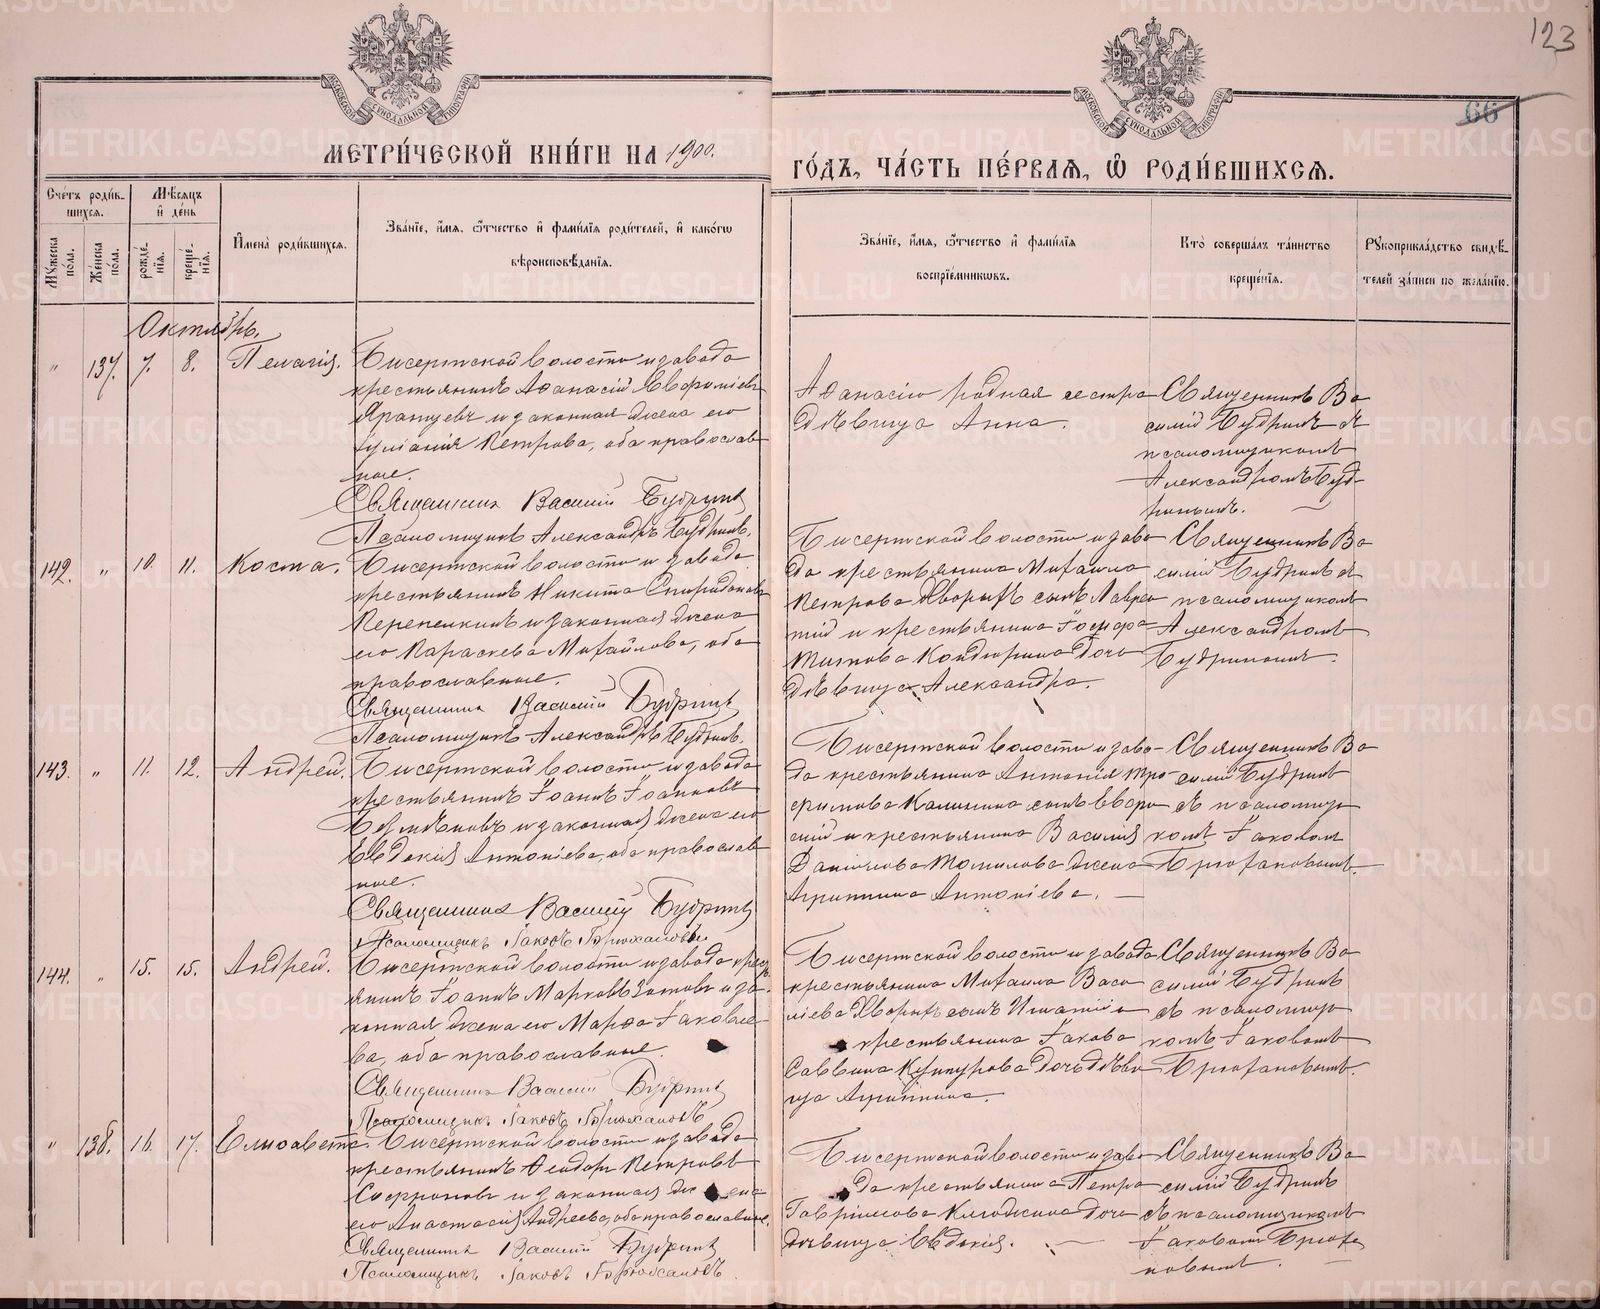 123
66
МЕТРИ́ЧЕСКОЙ КНИ́ГИ НА 1900.
ГО́ДЪ, ЧА́СТЬ ПЕ́РВАЯ, Ѡ РОДИ́ВШИХСЯ.
Сче́тъ роди́в-
шихся.
Мꙋ́жеска по́ла.
Же́нска по́ла.
Мѣ́сяцъ
и҆ де́нь
рожде́нїя.
креще́нїя.
И҆мена̀ роди́вшихся.
Зва́нїе, и҆́мя, ѻ҆́тчество и҆ фами́лїя роди́телей, и҆ како́гѡ
вѣроисповѣ́данїя.
Зва́нїе, и҆́мя, ѻ҆́тчество и҆ фами́лїя
воспрїе́мникѡвъ.
Кто̀ соверша́лъ та́инство
креще́нїя.
Рꙋкоприкла́дство свидѣ́-
телей за́писи по жела́нїю.
Октябрь.
" 137. 7. 8. Пелагія.
Бисертской волости и завода
крестьянинъ Аѳанасій Евфиміевъ
и законная жена его
Петрова, оба православ
ные.
Священникъ Василій Будринъ
Псаломщикъ Александръ Будринъ.
Аѳанасію родная сестра
дѣвица Анна.
Священникъ Ва
силій Будринъ съ
псаломщикомъ
Александромъ Буд-
ринымъ.
142. " 10. 11. Косма.
Бисертской волости и завода
крестьянинъ Никита Спиридоновъ
Перепелкинъ и законная жена
его Параскева Михайлова, оба
православные.
Священникъ Василій Будринъ
Псаломщикъ Александръ Будринъ.
Бисертской волости и заво
да крестьянина Михаила
Петрова сынъ Лаврен
тій и крестьянина Іосифа
Титова дочь
дѣвица Александра.
Священникъ Ва
силій Будринъ съ
псаломщикомъ
Александромъ
Будринымъ.
143. " 11. 12. Андрей.
Бисертской волости и завода
крестьянинъ Іоаннъ Іоанновъ
и законная жена его
Евдокія Антоніева, оба православ
ные.
Священникъ Василій Будринъ
Псаломщикъ Іаковъ
Бисертской волости и заво-
да крестьянина Антонія Тро-
фимова Калинина сынъ
и крестьянина Василія
Данилова Томилова жена
Агриппина Антоніева.
Священникъ Ва
силій Будринъ
съ псаломщи
комъ Іаковомъ
144. " 15. 15. Андрей.
Бисертской волости и завода крест
янинъ Іоаннъ Марковъ Зотовъ и за-
конная жена его Марѳа Іаковле-
ва, оба православные.
Священникъ Василій Будринъ
Псаломщикъ Іаковъ
Бисертской волости и завода
крестьянина Михаила Васи
ліева сынъ Игнатій и
крестьянина Іакова
Саввина дочь дѣви
ца Агриппина.
Священникъ Ва
силій Будринъ
съ псаломщи
комъ Іаковомъ
" 138. 16. 17. Елисавета.
Бисертской волости и завода
крестьянинъ Ѳеодоръ Петровъ
Софроновъ и законная жена
его Анастасія Андреева, оба православные.
Священникъ Василій Будринъ
Псаломщикъ Іаковъ
Бисертской волости и заво
да крестьянина Петра
Гавріилова дочь
дѣвица Евдокія.
Священникъ Ва
силій Будринъ
съ псаломщикомъ
Іаковомъ
METRIKI.GASO-URAL.RU